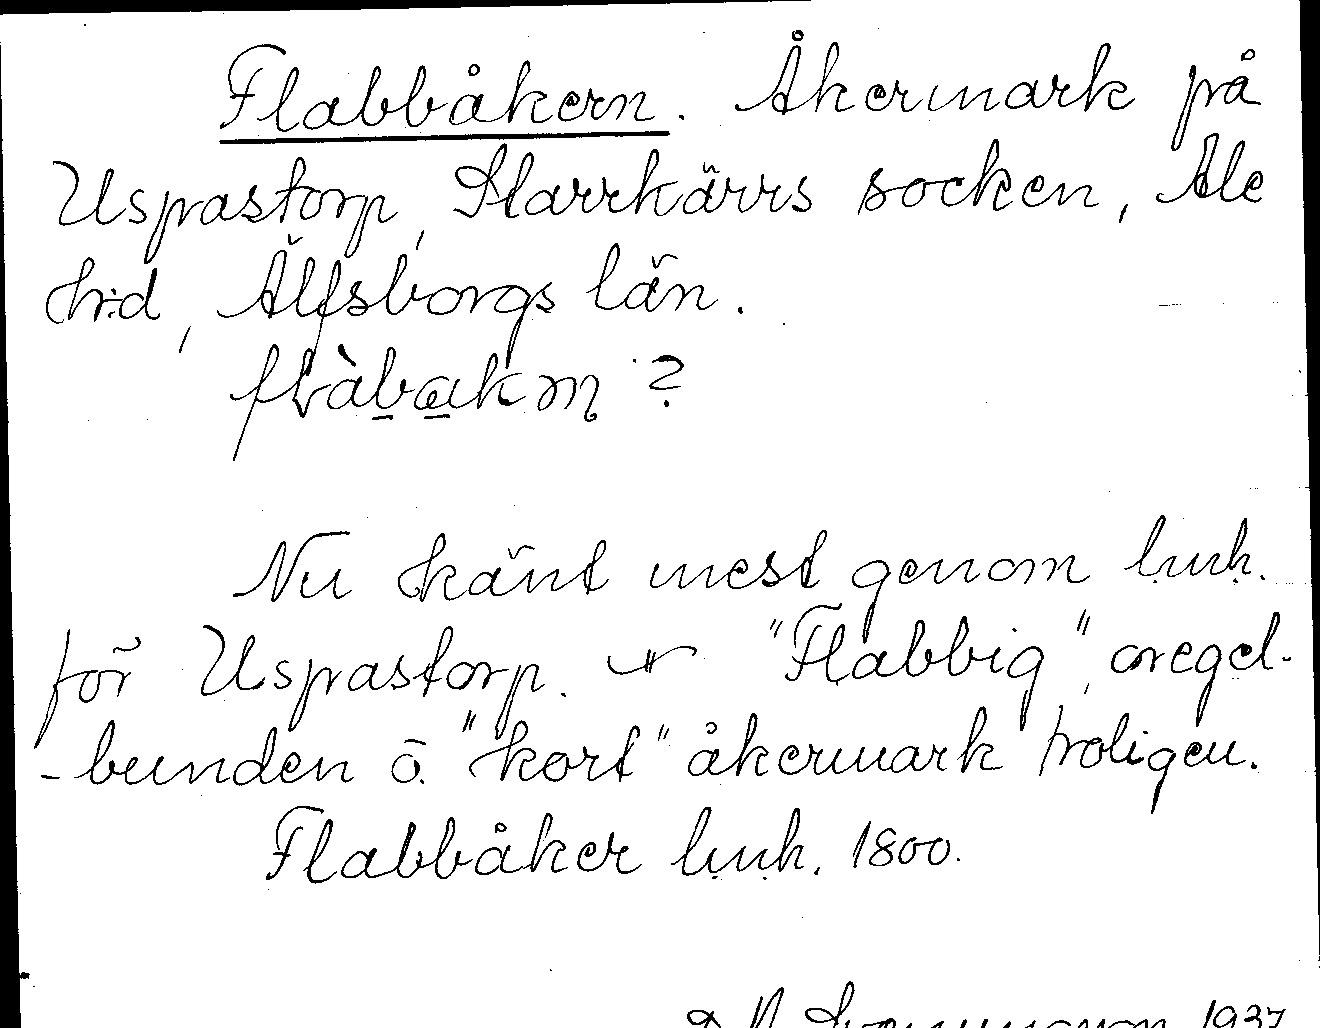 Flabbåkern. Åkermark på
Uspastorp, Starrkärrs socken, Ale
hd, Älfsborgs län.
Nu känt mest genom l.u.h.
för Uspastorp. "Flabbig", oregel-
-bunden o. "kort" åkermark troligen.
Flabbåker l.u.h. 1800.
1937